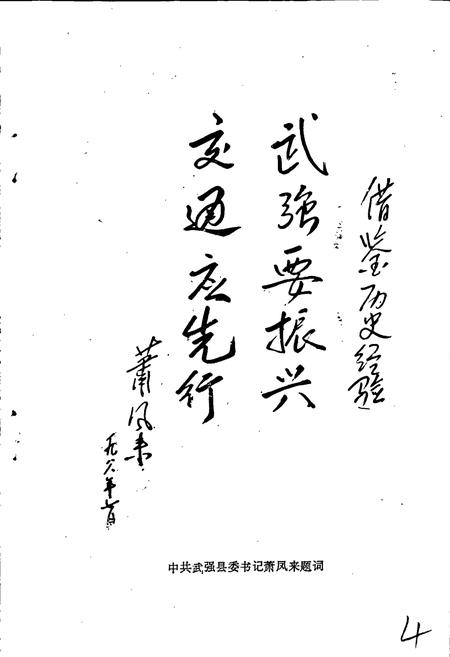 借鉴历史经验
武强要振兴
交通应先行
萧凤来
中共武强县委书记萧凤来题词
4